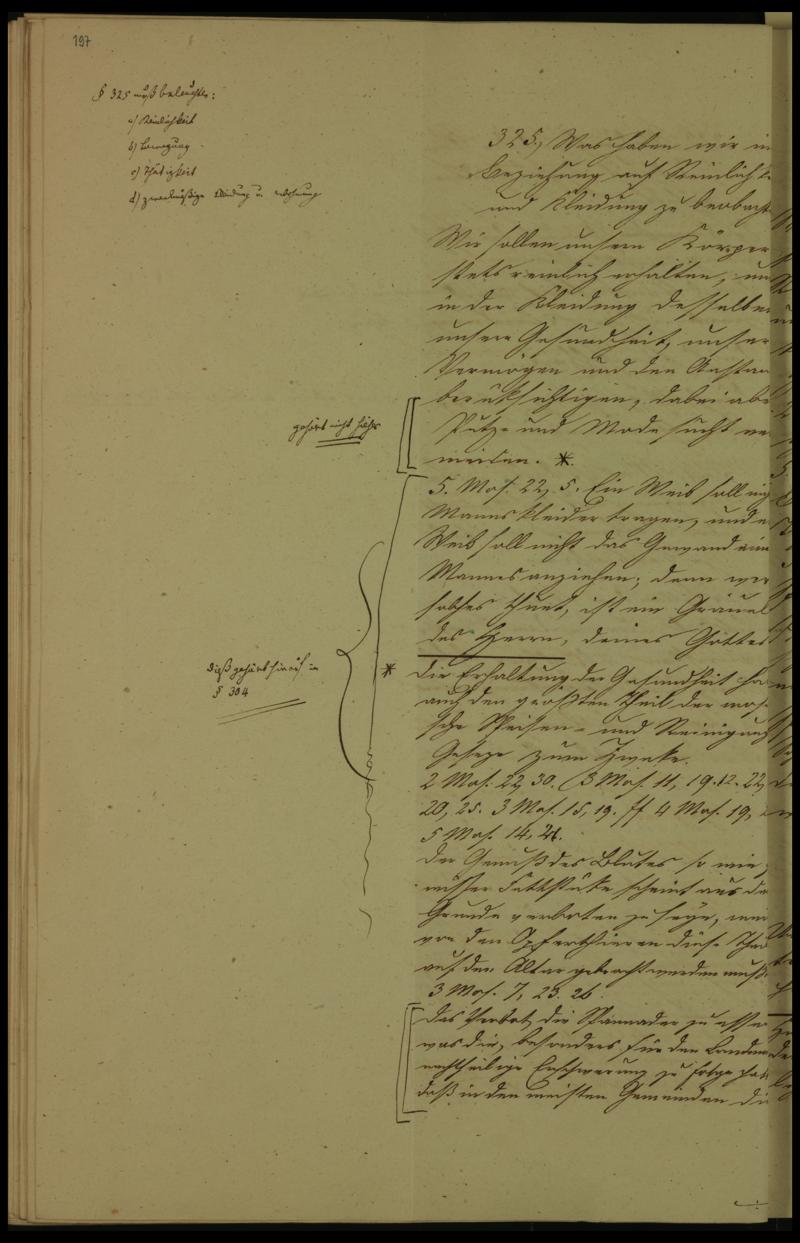 197
§ 325 muß beleuchten:
a) Reinlichkeit
b) Bewegung
c) Thätigkeit
d) zweckmäßige Kleidung u. Wohnung
325, Was haben wir in
Beziehung auf Reinlichk
und Kleidung zu beobacht
Wir sollen unsern Körper
stets reinlich erhalten, und
in der Kleidung desselben
unsere Gesundheit, unser
Vermögen und den Anstan
berüksichtigen, dabei abe
gehört nicht hieher
Putz- und Modesucht ver
meiden. *
5. Mos. 22, 5. Ein Weib soll nicht
Mannskleider tragen, und
Weib soll nicht das Gewand eines
Mannes anziehen; denn wer
solches thuet, ist ein Gräuel
des Herrn, deines Gottes
dieß gehört hinauf in
§ 304
* Die Erhaltung der Gesundheit ha
auch den größten Theil der mos
sche Speisen- und Reinigungs
Geseze zum Zweke.
2 Mos. 22, 30. (3 Mos. 11, 19. 12. 22,
20, 25. 3 Mos. 15, 19. ff 4 Mos. 19,
5 Mos. 14, 21.
Der Genuß des Blutes so wie
Fettstüke scheint aus de
Grunde verboten zu seyn, weil
von den Opferthieren diese Thei
auf den Altar gebracht werden muß
3 Mos. 7, 23. 26.
Das Verbot, die Spannader zu essen
was die, besonders für den Landm
nachtheilige Erschwerung zu Folge hat
daß in den meisten Gemeinden di